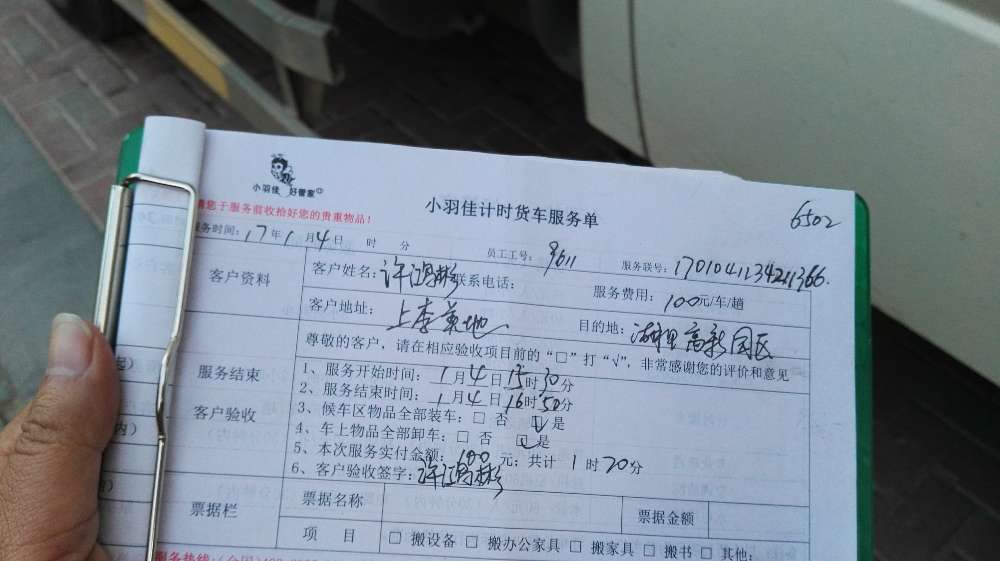 小羽佳 好管家
小羽佳计时货车服务单
6502
请您于服务前收拾好您的贵重物品！
服务时间：17年1月4日 时 分 员工工号：9611 服务联号：170104113421366
客户资料
客户姓名：许鸿彬 联系电话： 服务费用：100元/车/趟
客户地址：上李 目的地：湖里高新园区
尊敬的客户，请在相应验收项目前的“□”打“√”，非常感谢您的评价和意见
服务结束
客户验收
1、服务开始时间：1月4日15时30分
2、服务结束时间：1月4日16时50分
3、候车区物品全部装车：□ 否 ☑ 是
4、车上物品全部卸车：□ 否 ☑ 是
5、本次服务实付金额：100元；共计 1 时20分
6、客户验收签字：许鸿彬
票据栏
票据名称 票据金额
项 目 □ 搬设备 □ 搬办公家具 □ 搬家具 □ 搬书 □ 其他:
服务热线：(全国)400
起）
内）